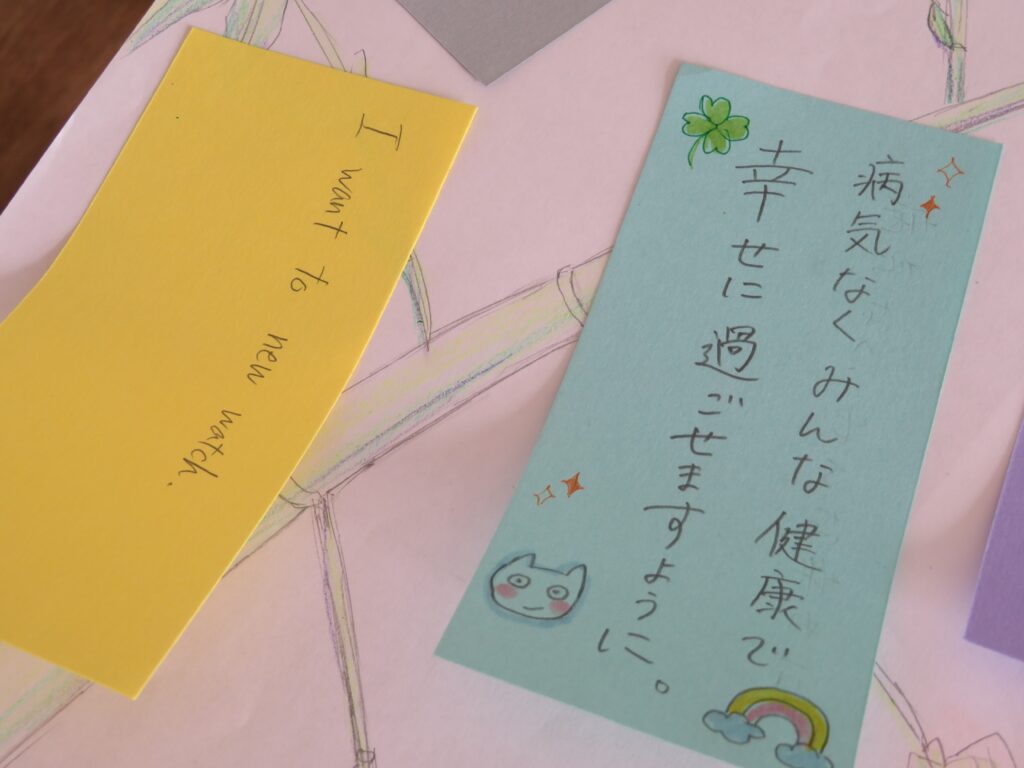 I want to new watch.
病気なくみんな健康で
幸せに過ごせますように。